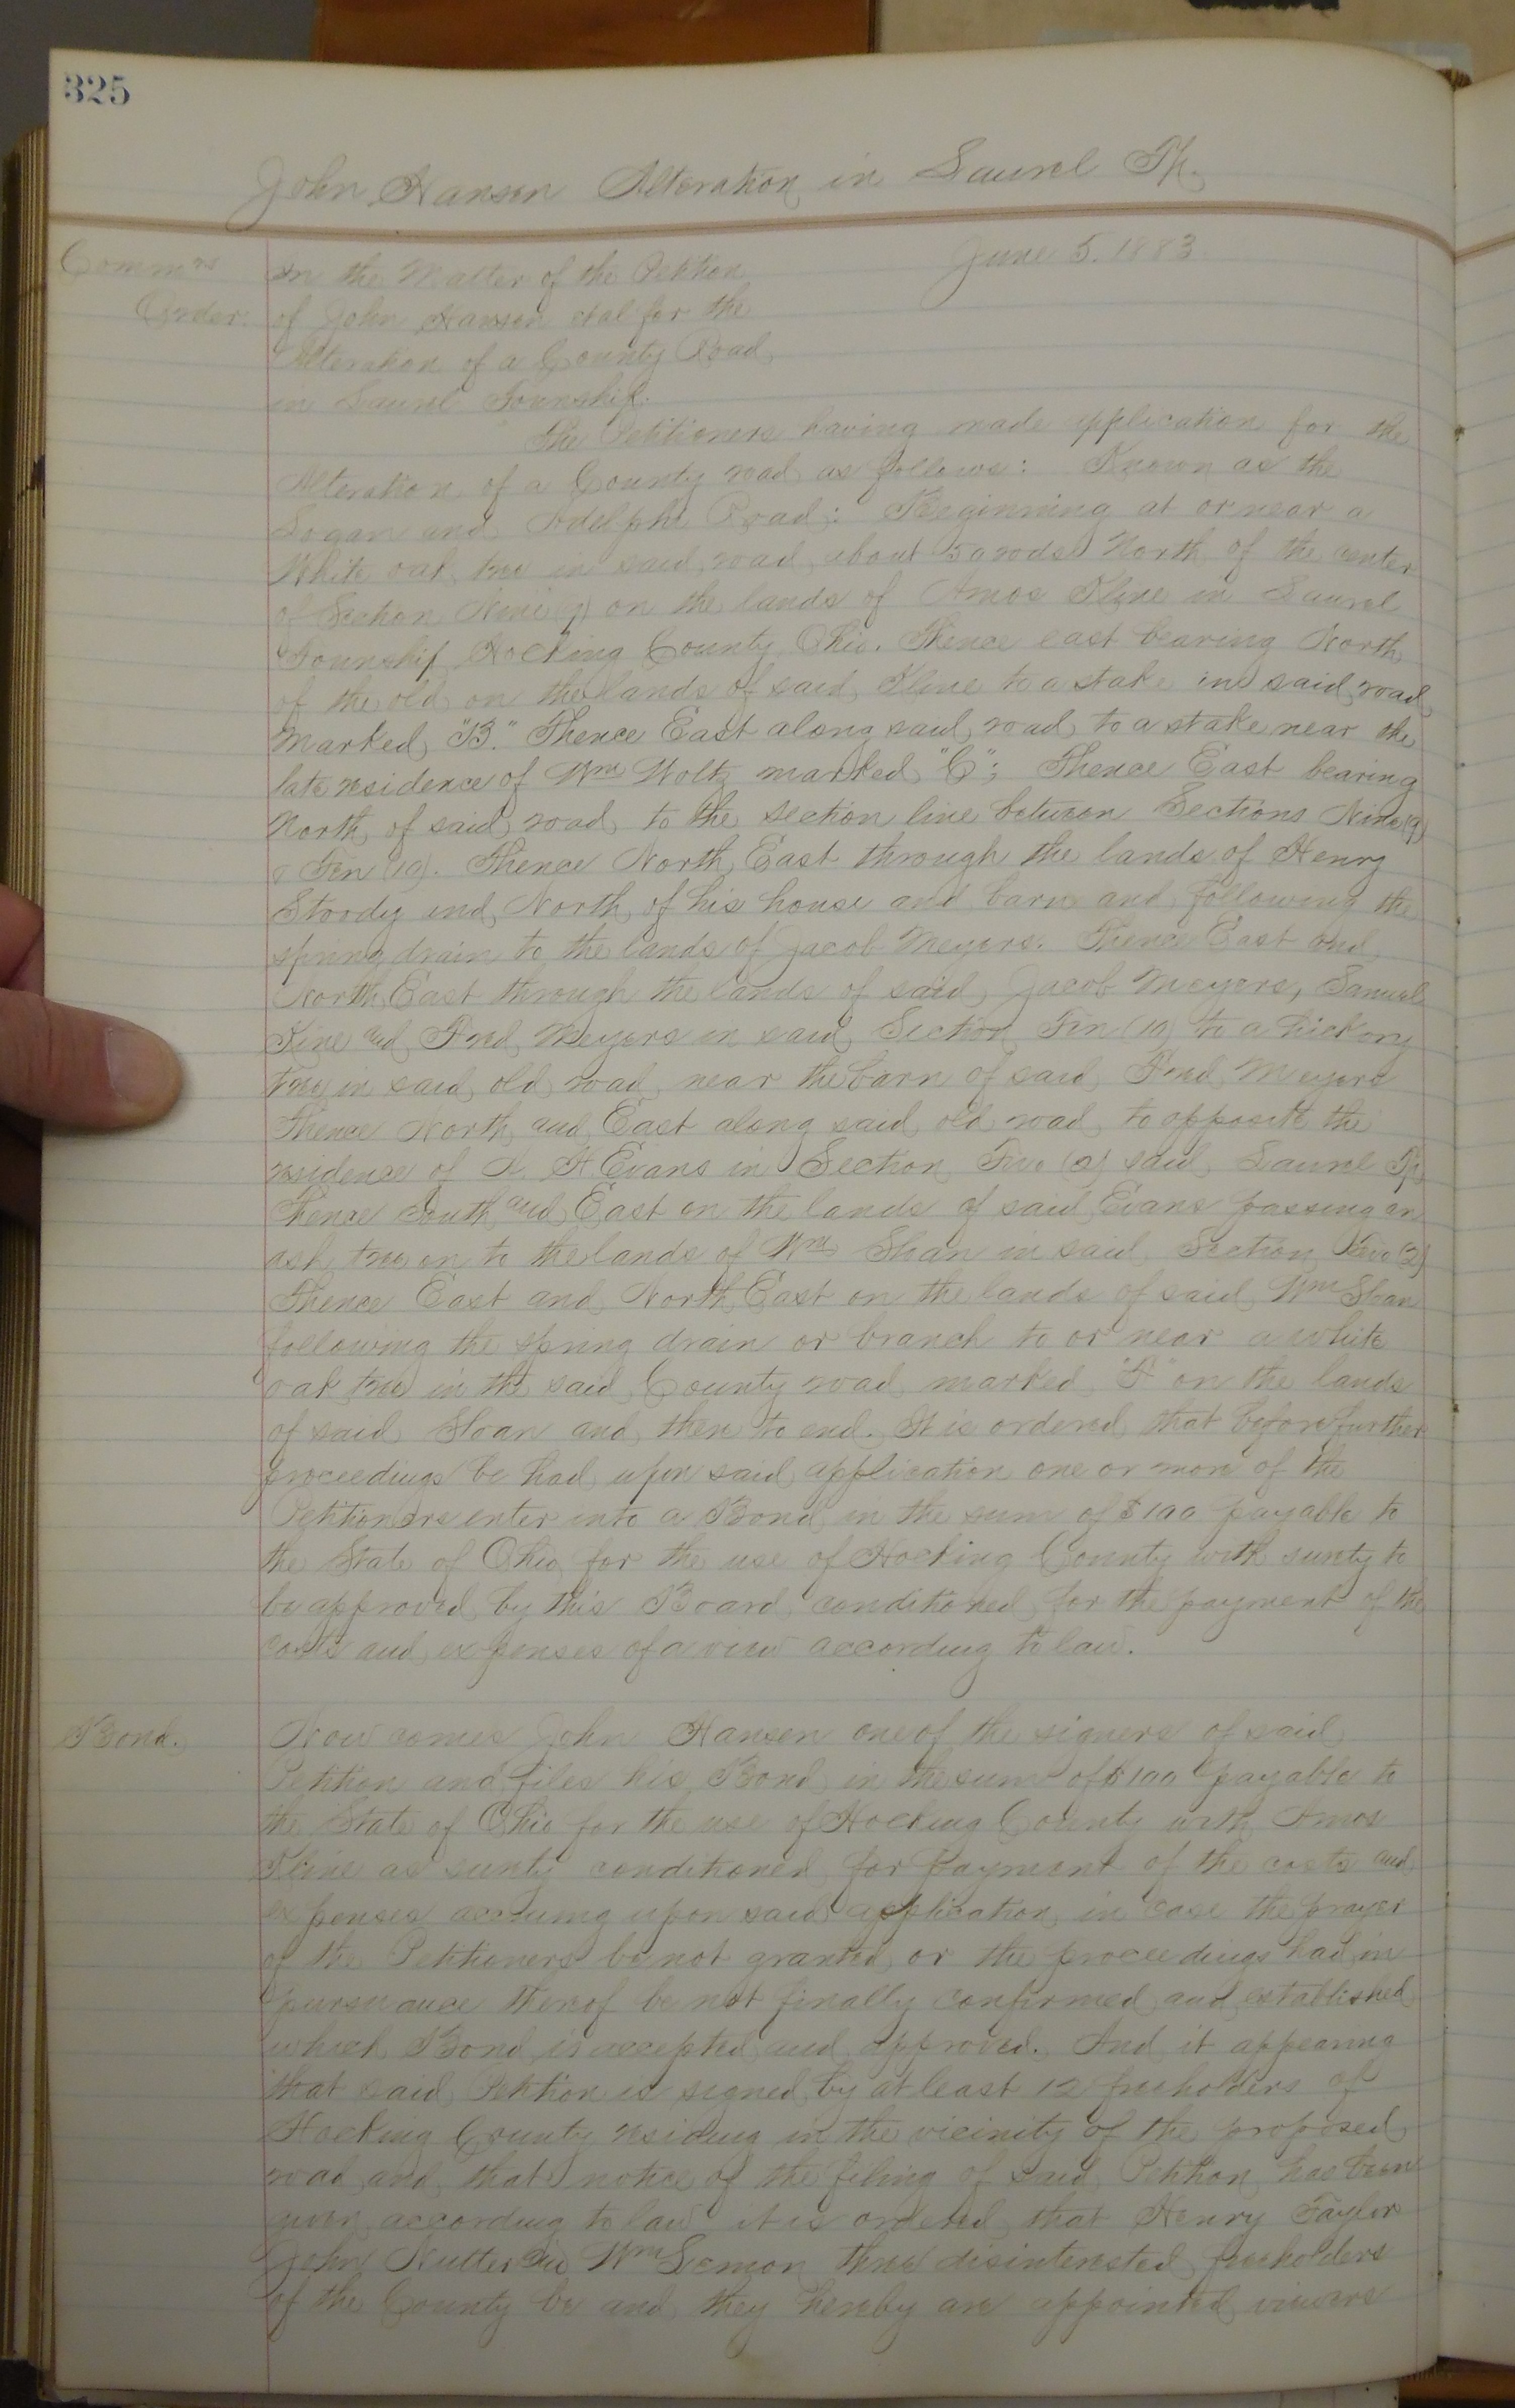 325
John Hansen Alteration in Laurel Tp.
June 5. 1883.
Comm'rs
Order.
In the Matter of the Petition
of John Hansen et al for the
Alteration of a County Road
in Laurel Township.
The Petitioners having made application for the
Alteration of a County road as follows: Known as the
Logan and Adelphi Road: Beginning at or near a
White oak tree in said road about 50 rods North of the center
of Section Nine (9) on the lands of Amos Kline in Laurel
Township Hocking County Ohio. Thence east bearing North
of the old on the lands of said Kline to a stake in said road
Marked "B." Thence East along said road to a stake near the
late residence of Wm Woltz marked "C"; Thence East bearing
North of said road to the section line between Sections Nine (9)
& Ten (10). Thence North East through the lands of Henry
Stoody and North of his house and barn and following the
spring drain to the lands of Jacob Meyers. Thence East and
North East through the lands of said Jacob Meyers, Samuel
Kine and Fred Meyers in said Section Ten (10) to a hickory
tree in said old road near the barn of said Fred Meyers
Thence North and East along said old road to opposite the
residence of A. H Evans in Section Two (2) said Laurel Tp
Thence South and East on the lands of said Evans passing an
ash tree on to the lands of Wm Sloan in said Section Two (2)
Thence East and North East on the lands of said Wm Sloan
following the spring drain or branch to or near a white
oak tree in the said County road marked "F" on the lands
of said Sloan and then to end. It is ordered that before further
proceedings be had upon said application one or more of the
Petitioners enter into a Bond in the sum of $100 payable to
the State of Ohio for the use of Hocking County with surety to
be approved by this Board conditioned for the payment of the
costs and expenses of a view according to law.
Bond.
Now comes John Hansen one of the signers of said
Petition and files his Bond in the sum of $100 payable to
the State of Ohio for the use of Hocking County with Amos
Kline as surety conditioned for payment of the costs and
expenses accruing upon said application in case the prayer
of the Petitioners be not granted or the proceedings had in
pursuance thereof be not finally confirmed and established
which Bond is accepted and approved. And it appearing
that said Petition is signed by at least 12 freeholders of
Hocking County residing in the vicinity of the proposed
road and that notice of the filing of said Petition has been
given according to law it is ordered that Henry Taylor
John Nutter and Wm Lemon three disinterested freeholders
of the County be and they hereby are appointed viewers